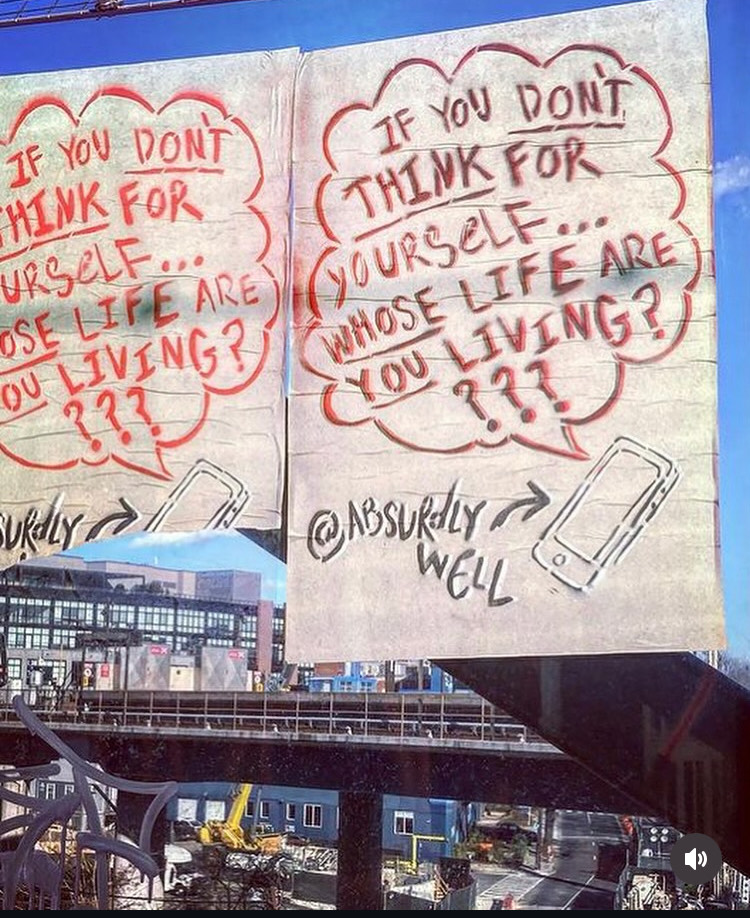 IF YOU DON'T
THINK FOR
URSELF...
OSE LIFE ARE
OU LIVING?
???
SURdLY
IF YOU DON'T
THINK FOR
YOURSELF...
WHOSE LIFE ARE
YOU LIVING?
???
@ABSURdLY
WELL